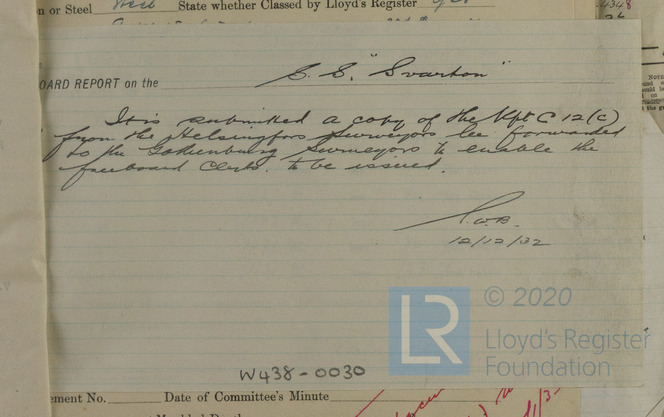 on or Steel Steel State whether Classed by Lloyd's Register Yes
4348
OARD REPORT on the S.S. "Svarton"
It is submitted a copy of the Rpt C 12(c)
from the Helsingfors Surveyors be forwarded
to the Gothenburg Surveyors to enable the
freeboard Certs. to be issued.
12/12/32
LR © 2020
Lloyd's Register
Foundation
W438-0030
ement No. Date of Committee's Minute